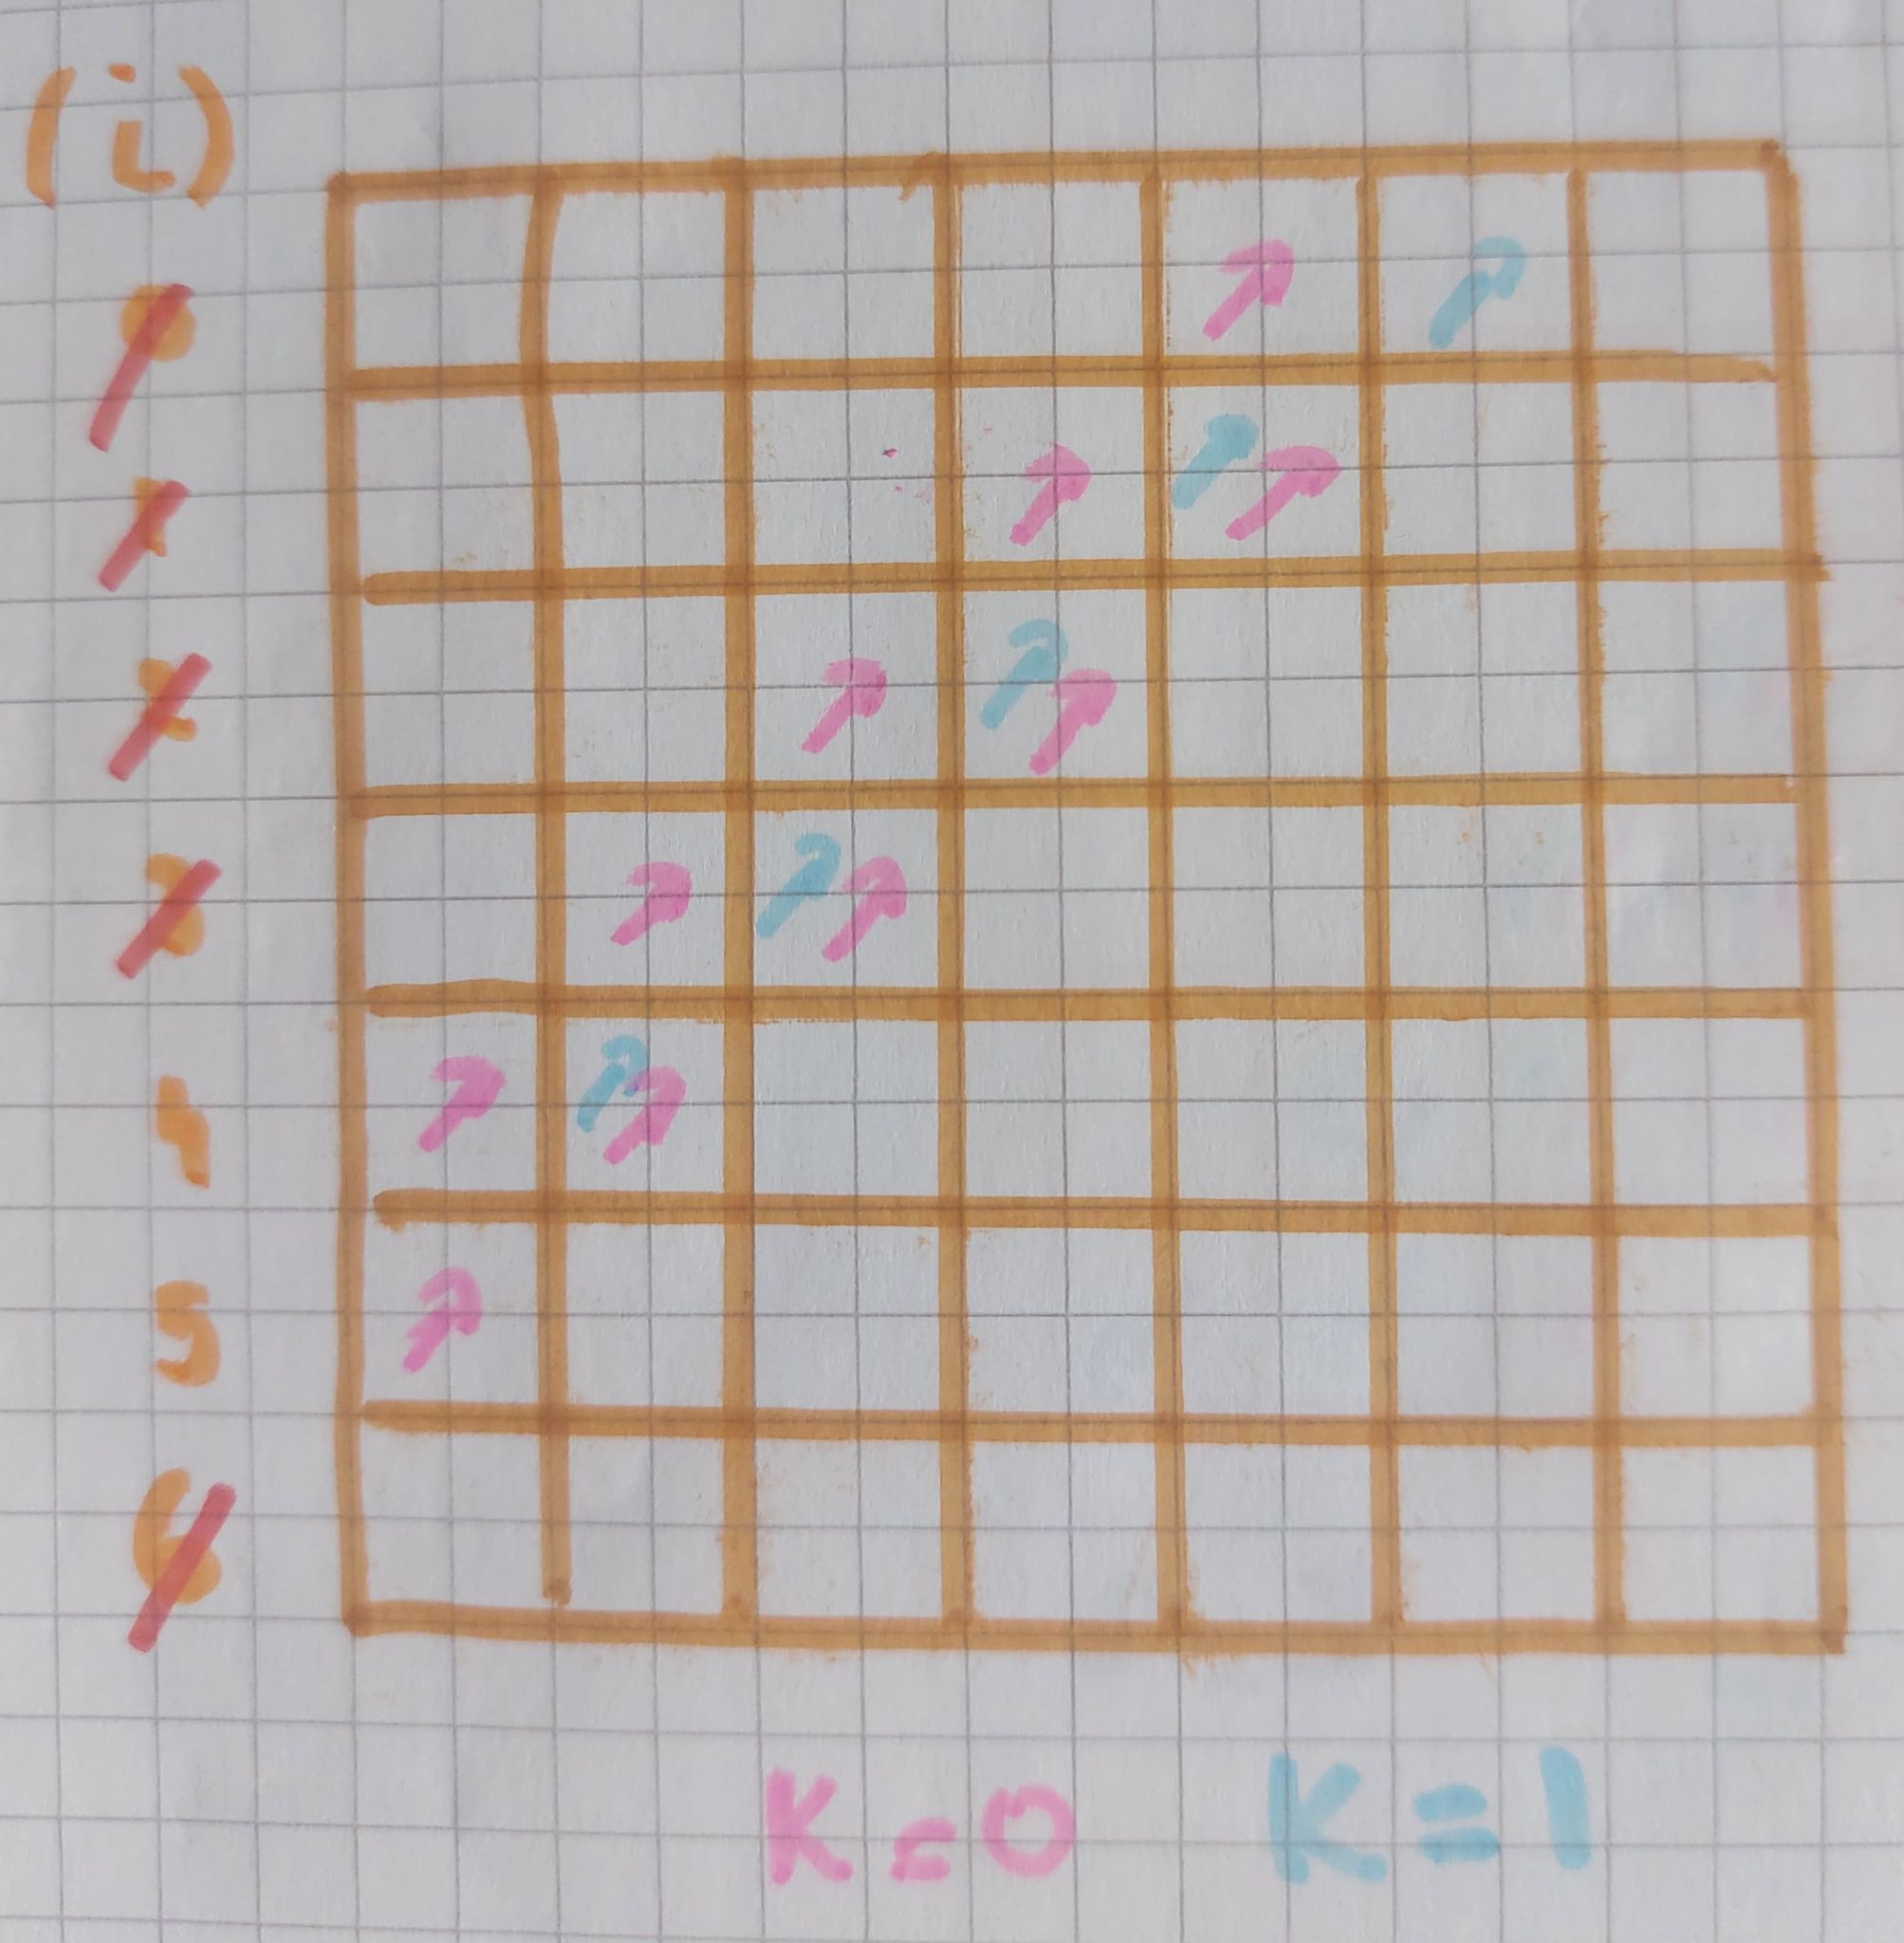 (i)
0
1
2
3
4
5
6
K=0 K=1